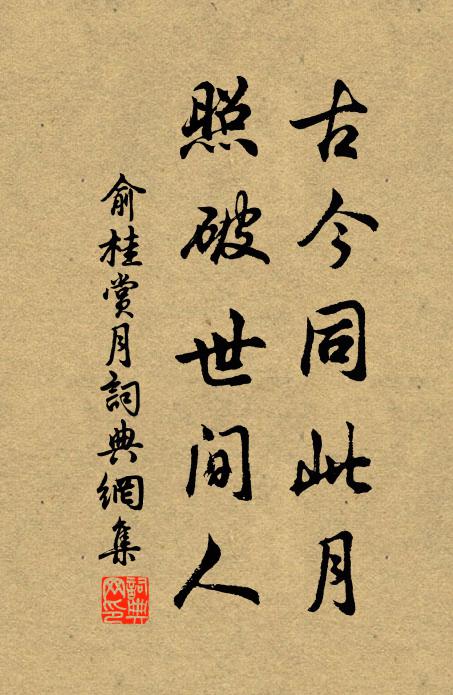 古今同此月
照破世間人
俞桂賞月詞典網集
詞典网印